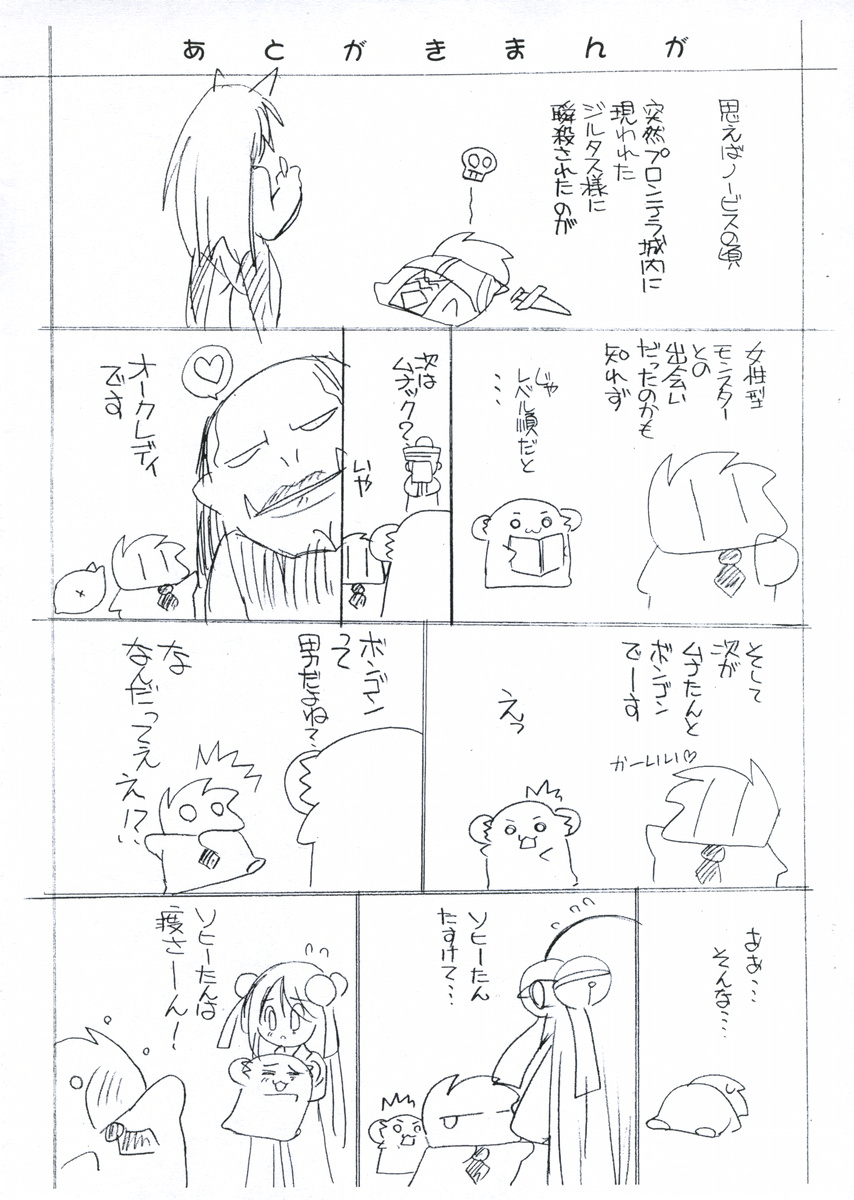 あとがきまんが
思えばノービスの頃
突然プロンテラ城内に
現われた
ジルタス様に
瞬殺されたのが
女性型
モンスター
との
出会い
だったのかも
知れず
じゃ
レベル順だと
…
次は
ムナック?
いや
オークレディ
です
そして
次が
ムナたんと
ボンゴン
でーす
かーいい♡
えっ
ボンゴン
って
男だよね?
な
なんだってええ!?
ああ…
そんな…
ソヒーたん
たすけて…
ソヒーたんは
渡さーん!